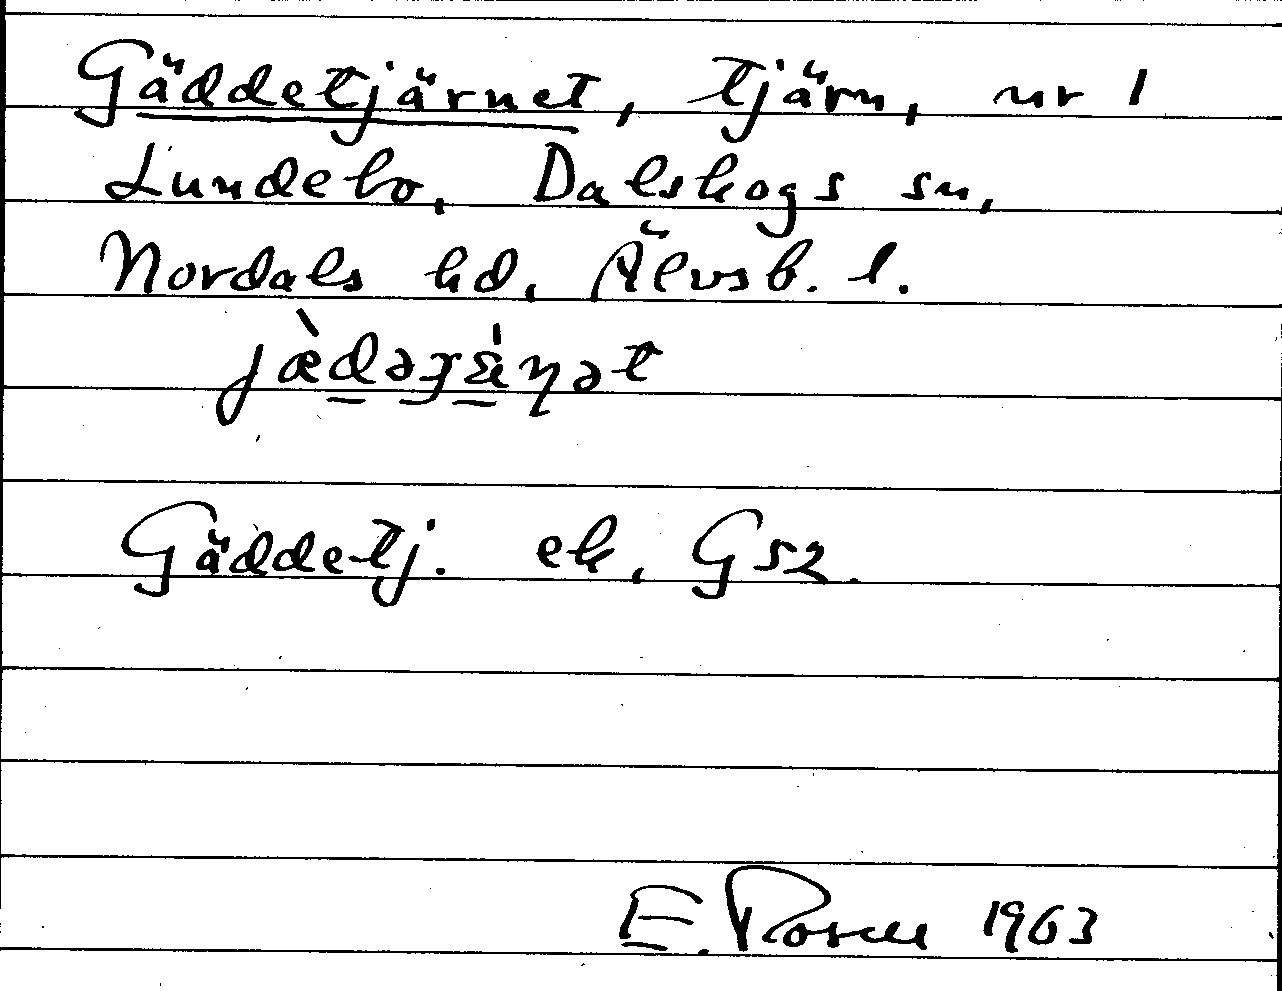 Gäddetjärnet, tjärn, nr 1
Lundebo, Dalskogs sn,
Nordals hd, Älvsb. l.
Gäddetj. ek, G52.
E. Rosell 1963